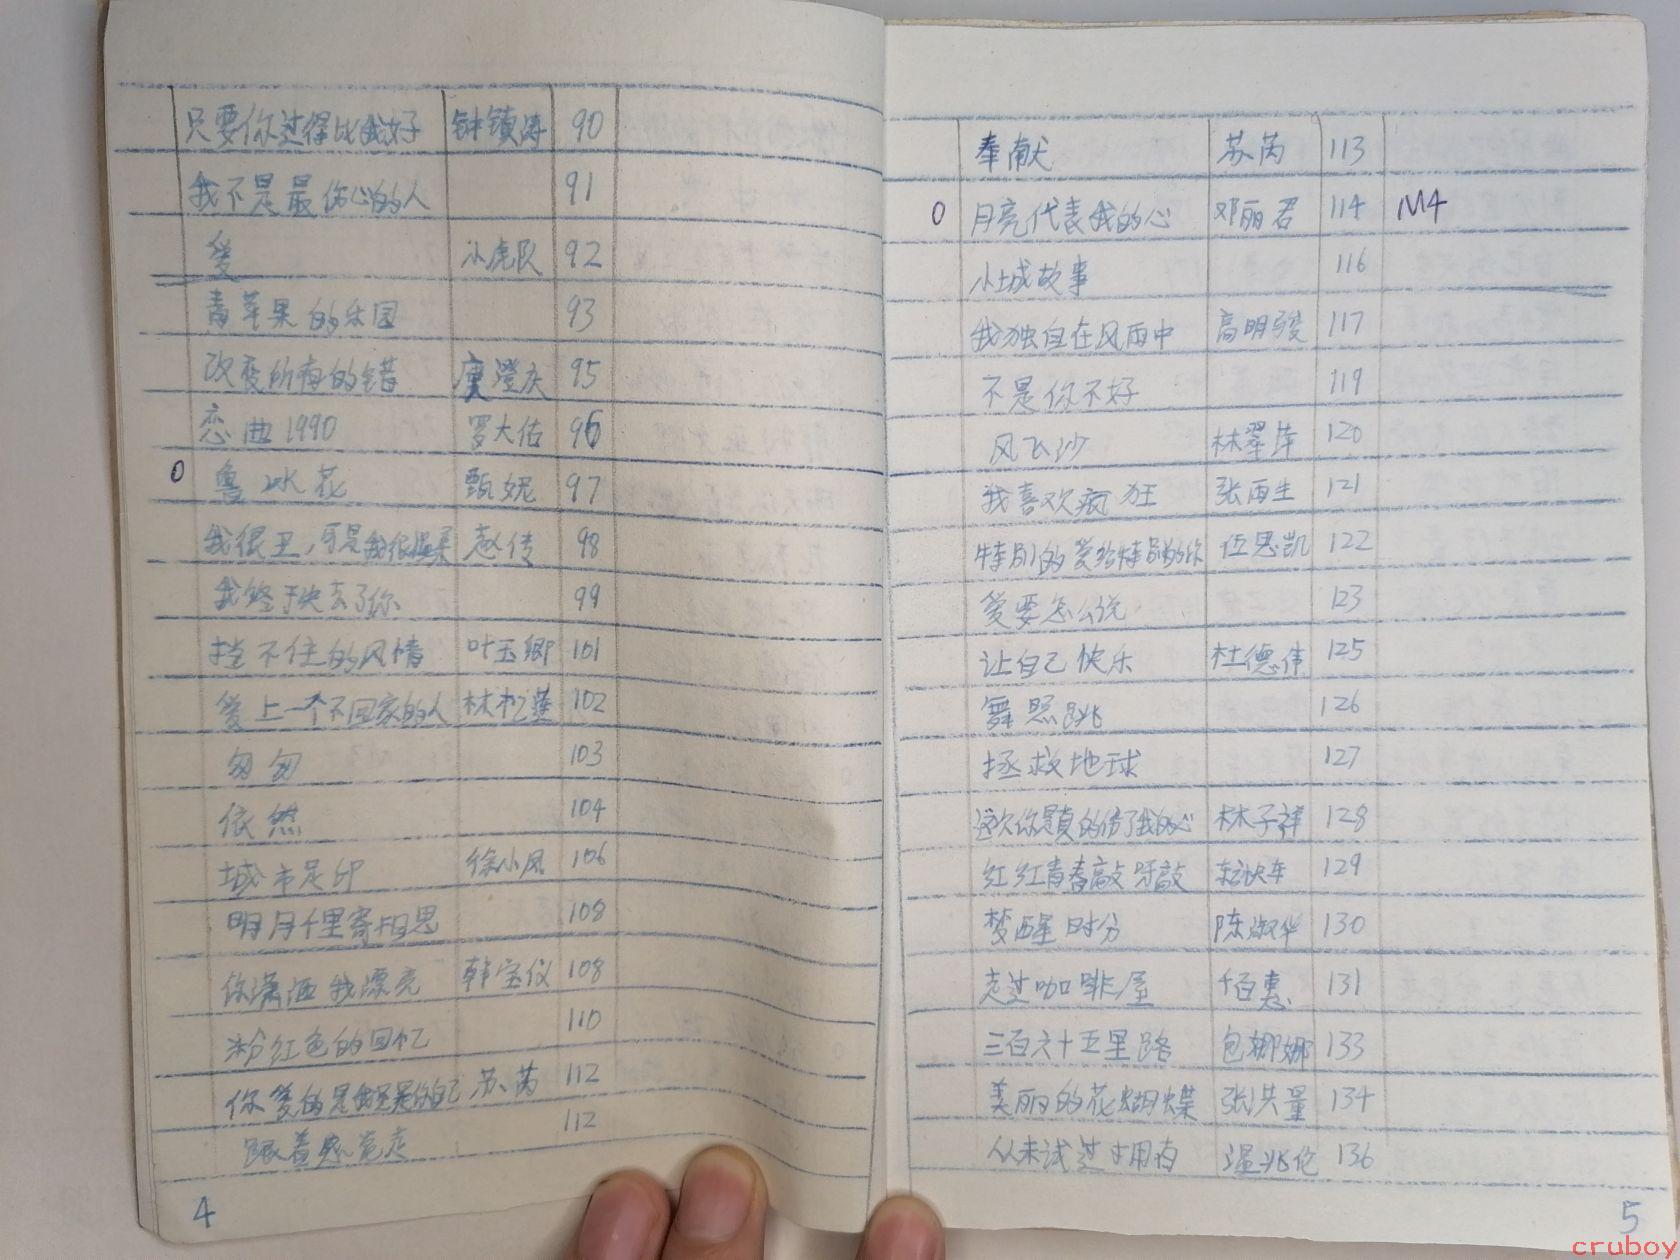 只要你过得比我好 钟镇涛 90
我不是最伤心的人 91
爱 小虎队 92
青苹果的乐园 93
改变所有的错 庾澄庆 95
恋曲1990 罗大佑 96
0 鲁冰花 甄妮 97
我很丑，可是我很温柔 赵传 98
我终于失去了你 99
挡不住的风情 叶玉卿 101
爱上一个不回家的人 林忆莲 102
匆匆 103
依然 104
城市足印 徐小凤 106
明月千里寄相思 108
你潇洒我漂亮 韩宝仪 108
粉红色的回忆 110
你爱的是我还是你自己 苏芮 112
跟着感觉走 112
4
奉献 苏芮 113
0 月亮代表我的心 邓丽君 114 1M4
小城故事 116
我独自在风雨中 高明骏 117
不是你不好 119
风飞沙 林翠萍 120
我喜欢疯狂 张雨生 121
特别的爱给特别的你 伍思凯 122
爱要怎么说 123
让自己快乐 杜德伟 125
舞照跳 126
拯救地球 127
这次你是真的伤了我的心 林子祥 128
红红青春敲呀敲 东方快车 129
梦醒时分 陈淑华 130
走过咖啡屋 千百惠 131
三百六十五里路 包娜娜 133
美丽的花蝴蝶 张洪量 134
从未试过拥有 温兆伦 136
5
cruboy